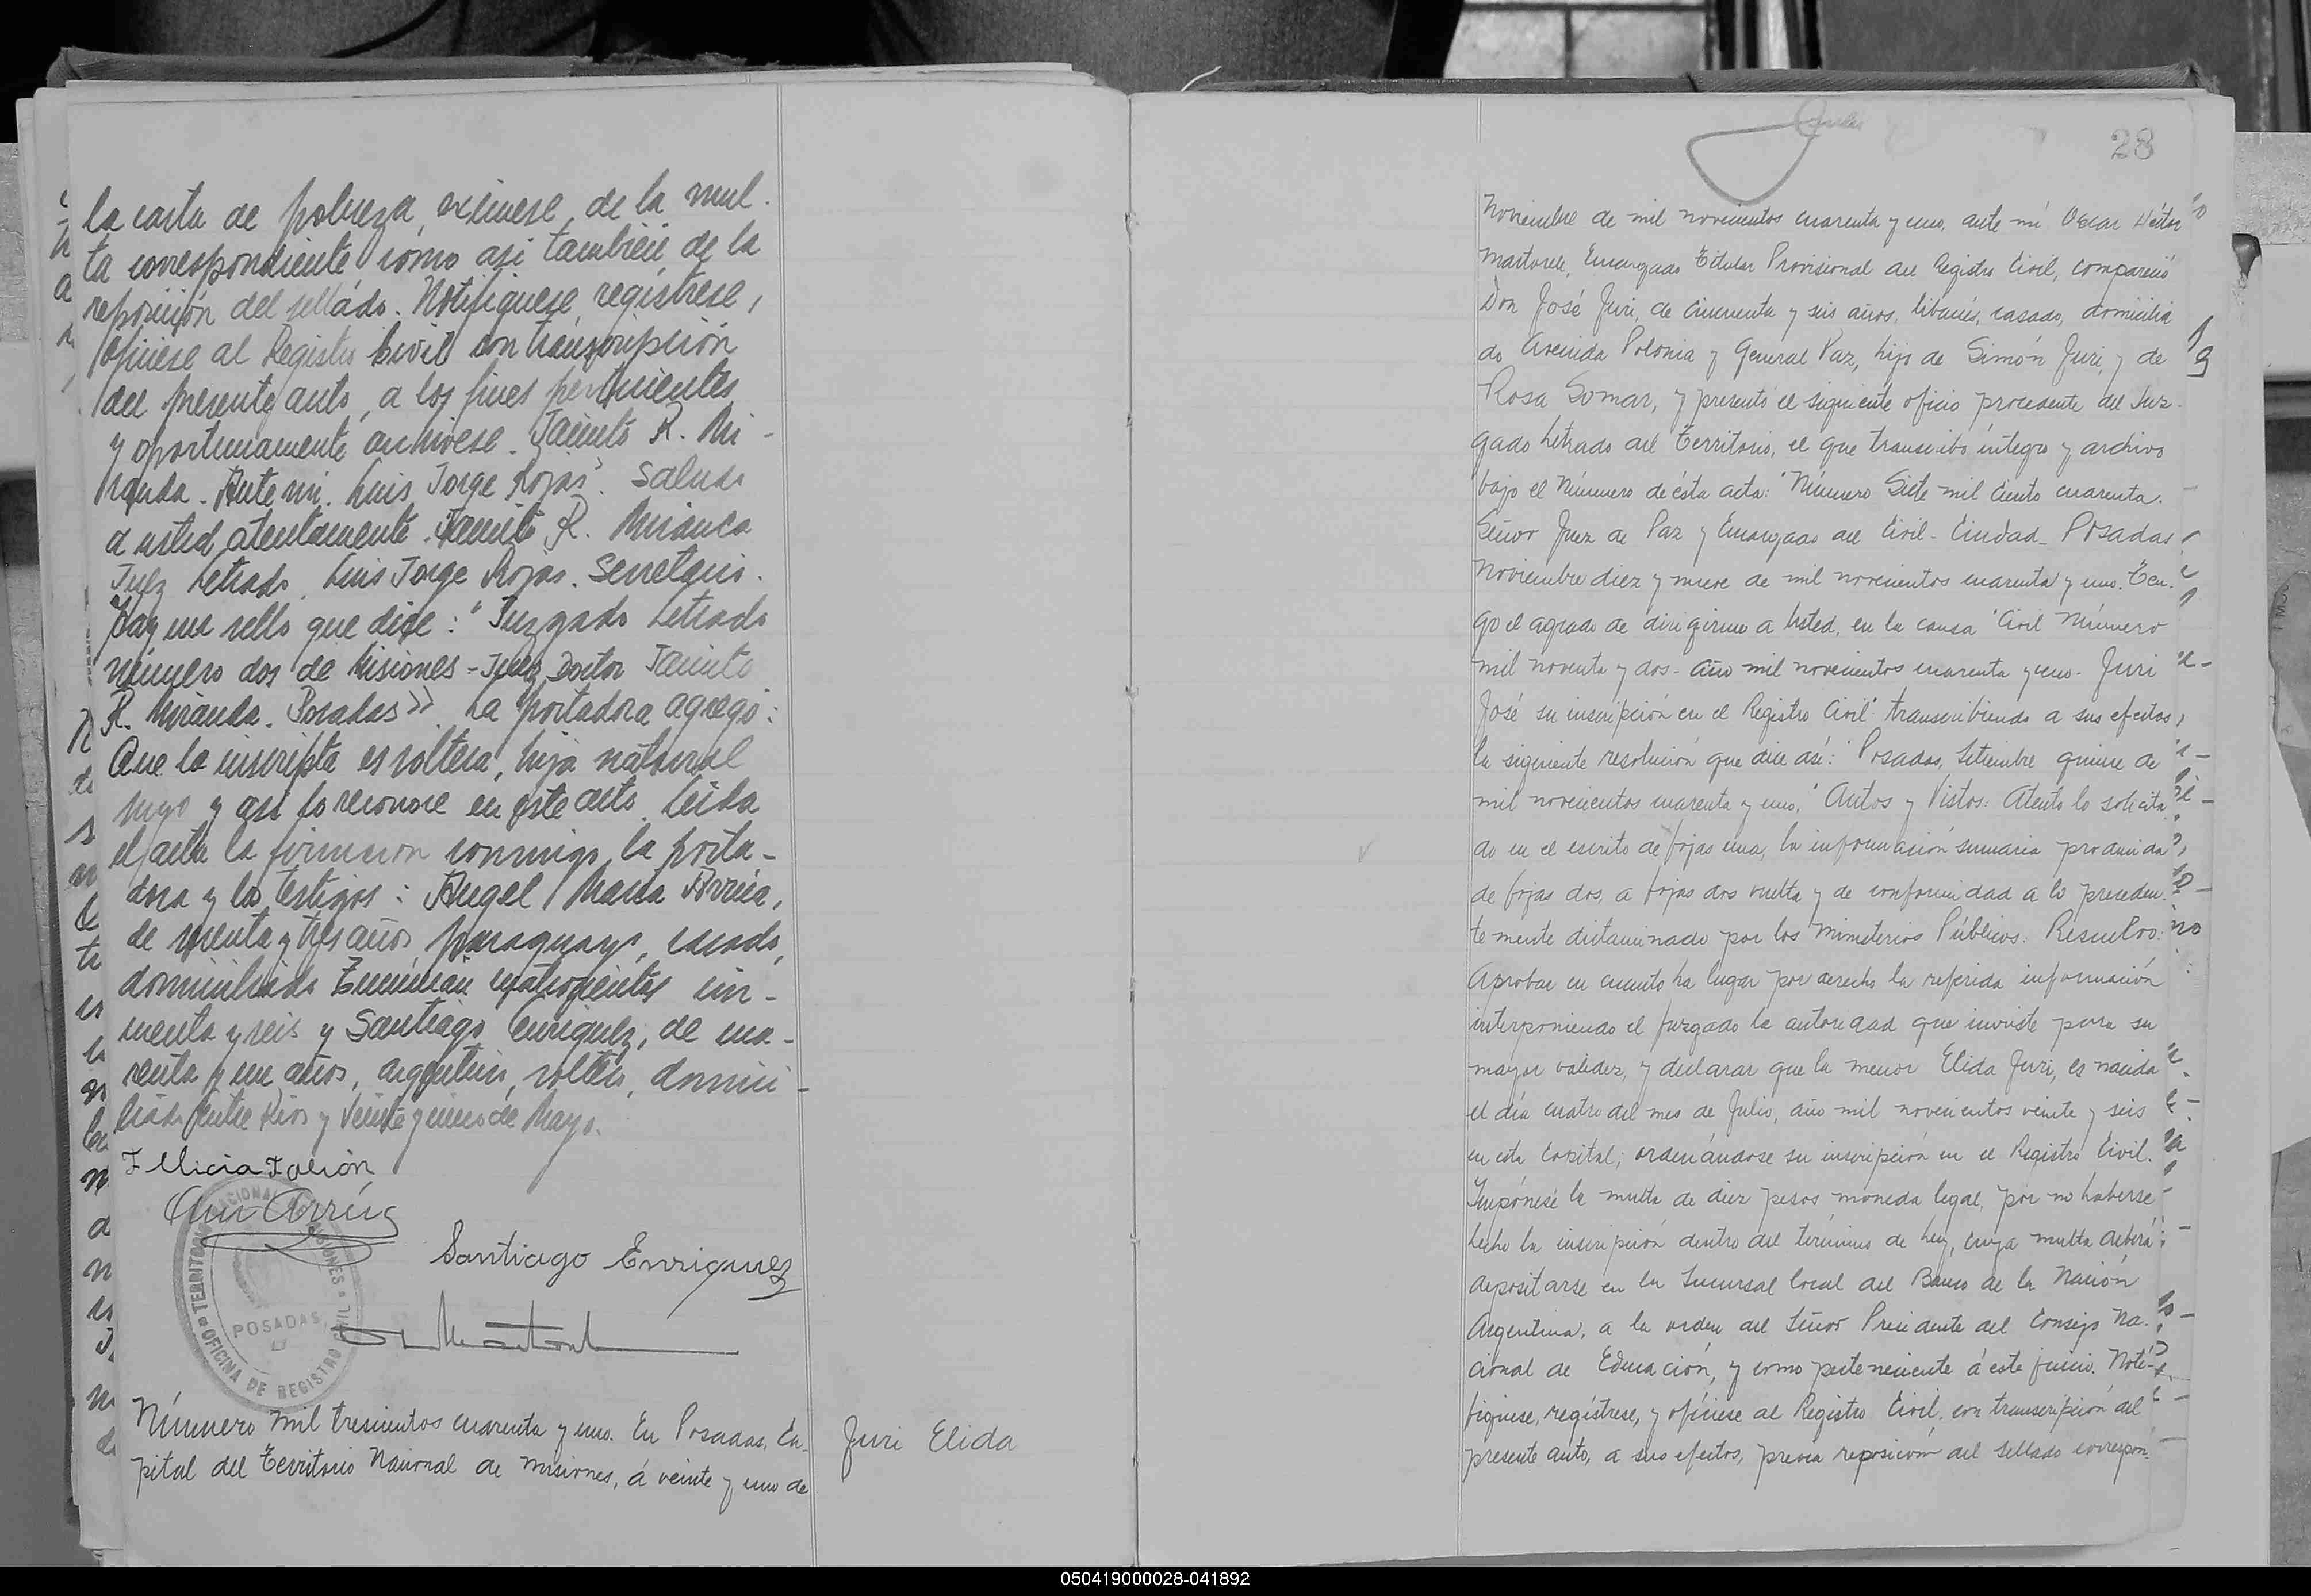 la carta de pobreza, exímese, de la mul-
ta correspondiente como asi también de la
reposición del sellado. Notifíquese, regístrese,
ofíciese al Registro Civil con transcripción
del presente auto, a los fines pertinentes
y oportunamente archívese. Jacinto R. Mi-
randa. Ante mi. Luis Jorge Rojas". Saludo
a usted atentamente. Jacinto R. Miranda
Juez Letrado. Luis Jorge Rojas. Secretario.
Hay un sello que dice: "Juzgado Letrado
número dos de Misiones - Juez Doctor Jacinto
R. Miranda. Posadas". La portadora agregó:
Que la inscripta es soltera, hija natural
suya y así lo reconoce en este acto. Leída
el acta la firmaron conmigo, la porta-
dora y los testigos: Angel María Arrúa,
de treinta y tres años, paraguayo, casado,
domiciliado Tucumán cuatrocientos cin-
cuenta y seis y Santiago Enriquez, de cua-
renta y un años, argentino, soltero, domici-
liado Entre Rios y Veinte y cinco de Mayo.
Santiago Enriquez
TERRITORIO NACIONAL MISIONES
POSADAS
OFICINA DE REGISTRO CIVIL
Número mil trescientos cuarenta y uno. En Posadas, Ca-
pital del Territorio Nacional de Misiones, á veinte y uno de
Juri Elida
28
Noviembre de mil novecientos cuarenta y uno, ante mí Oscar Héctor
Martorell, Encargado Titular Provisional del Registro Civil, compareció
Don José Juri, de cincuenta y seis años, libanés, casado, domicilia
do Avenida Polonia y General Paz, hijo de Simón Juri, y de
Rosa Somar, y presentó el siguiente oficio procedente del Juz-
gado Letrado del Territorio, el que transcribo íntegro y archivo
bajo el Número de ésta acta: "Número Siete mil ciento cuarenta.
Señor Juez de Paz y Encargado del Civil - Ciudad - Posadas
Noviembre diez y nueve de mil novecientos cuarenta y uno. Ten-
go el agrado de dirigirme a Usted, en la causa "Civil Número
mil noventa y dos - año mil novecientos cuarenta y uno - Juri
José su inscripción en el Registro Civil" transcribiendo a sus efectos,
la siguiente resolución que dice así: "Posadas, Setiembre quince de
mil novecientos cuarenta y uno." Autos y Vistos: Atento lo solicita
do en el escrito de fojas una, la información sumaria producida
de fojas dos, a fojas dos vuelta y de conformidad a lo preceden-
te mente dictaminado por los Ministerios Públicos: Resuelvo:
Aprobar en cuanto ha lugar por derecho la referida información
interponiendo el juzgado la autoridad que inviste para su
mayor validez, y declarar que la menor Elida Juri, es nacida
el día cuatro del mes de Julio, año mil novecientos veinte y seis
en esta Capital; ordenándose su inscripción en el Registro Civil.
Impónese la multa de diez pesos moneda legal, por no haberse
hecho la inscripción dentro del término de ley, cuya multa deberá
depositarse en la Sucursal local del Banco de la Nación
Argentina, a la orden del Señor Presidente del Consejo Na-
cional de Educación, y como perteneciente á este juicio. Noti-
fíquese, regístrese, y ofíciese al Registro Civil, con transcripción del
presente auto, a sus efectos, previa reposición del sellado correspon-
050419000028-041892